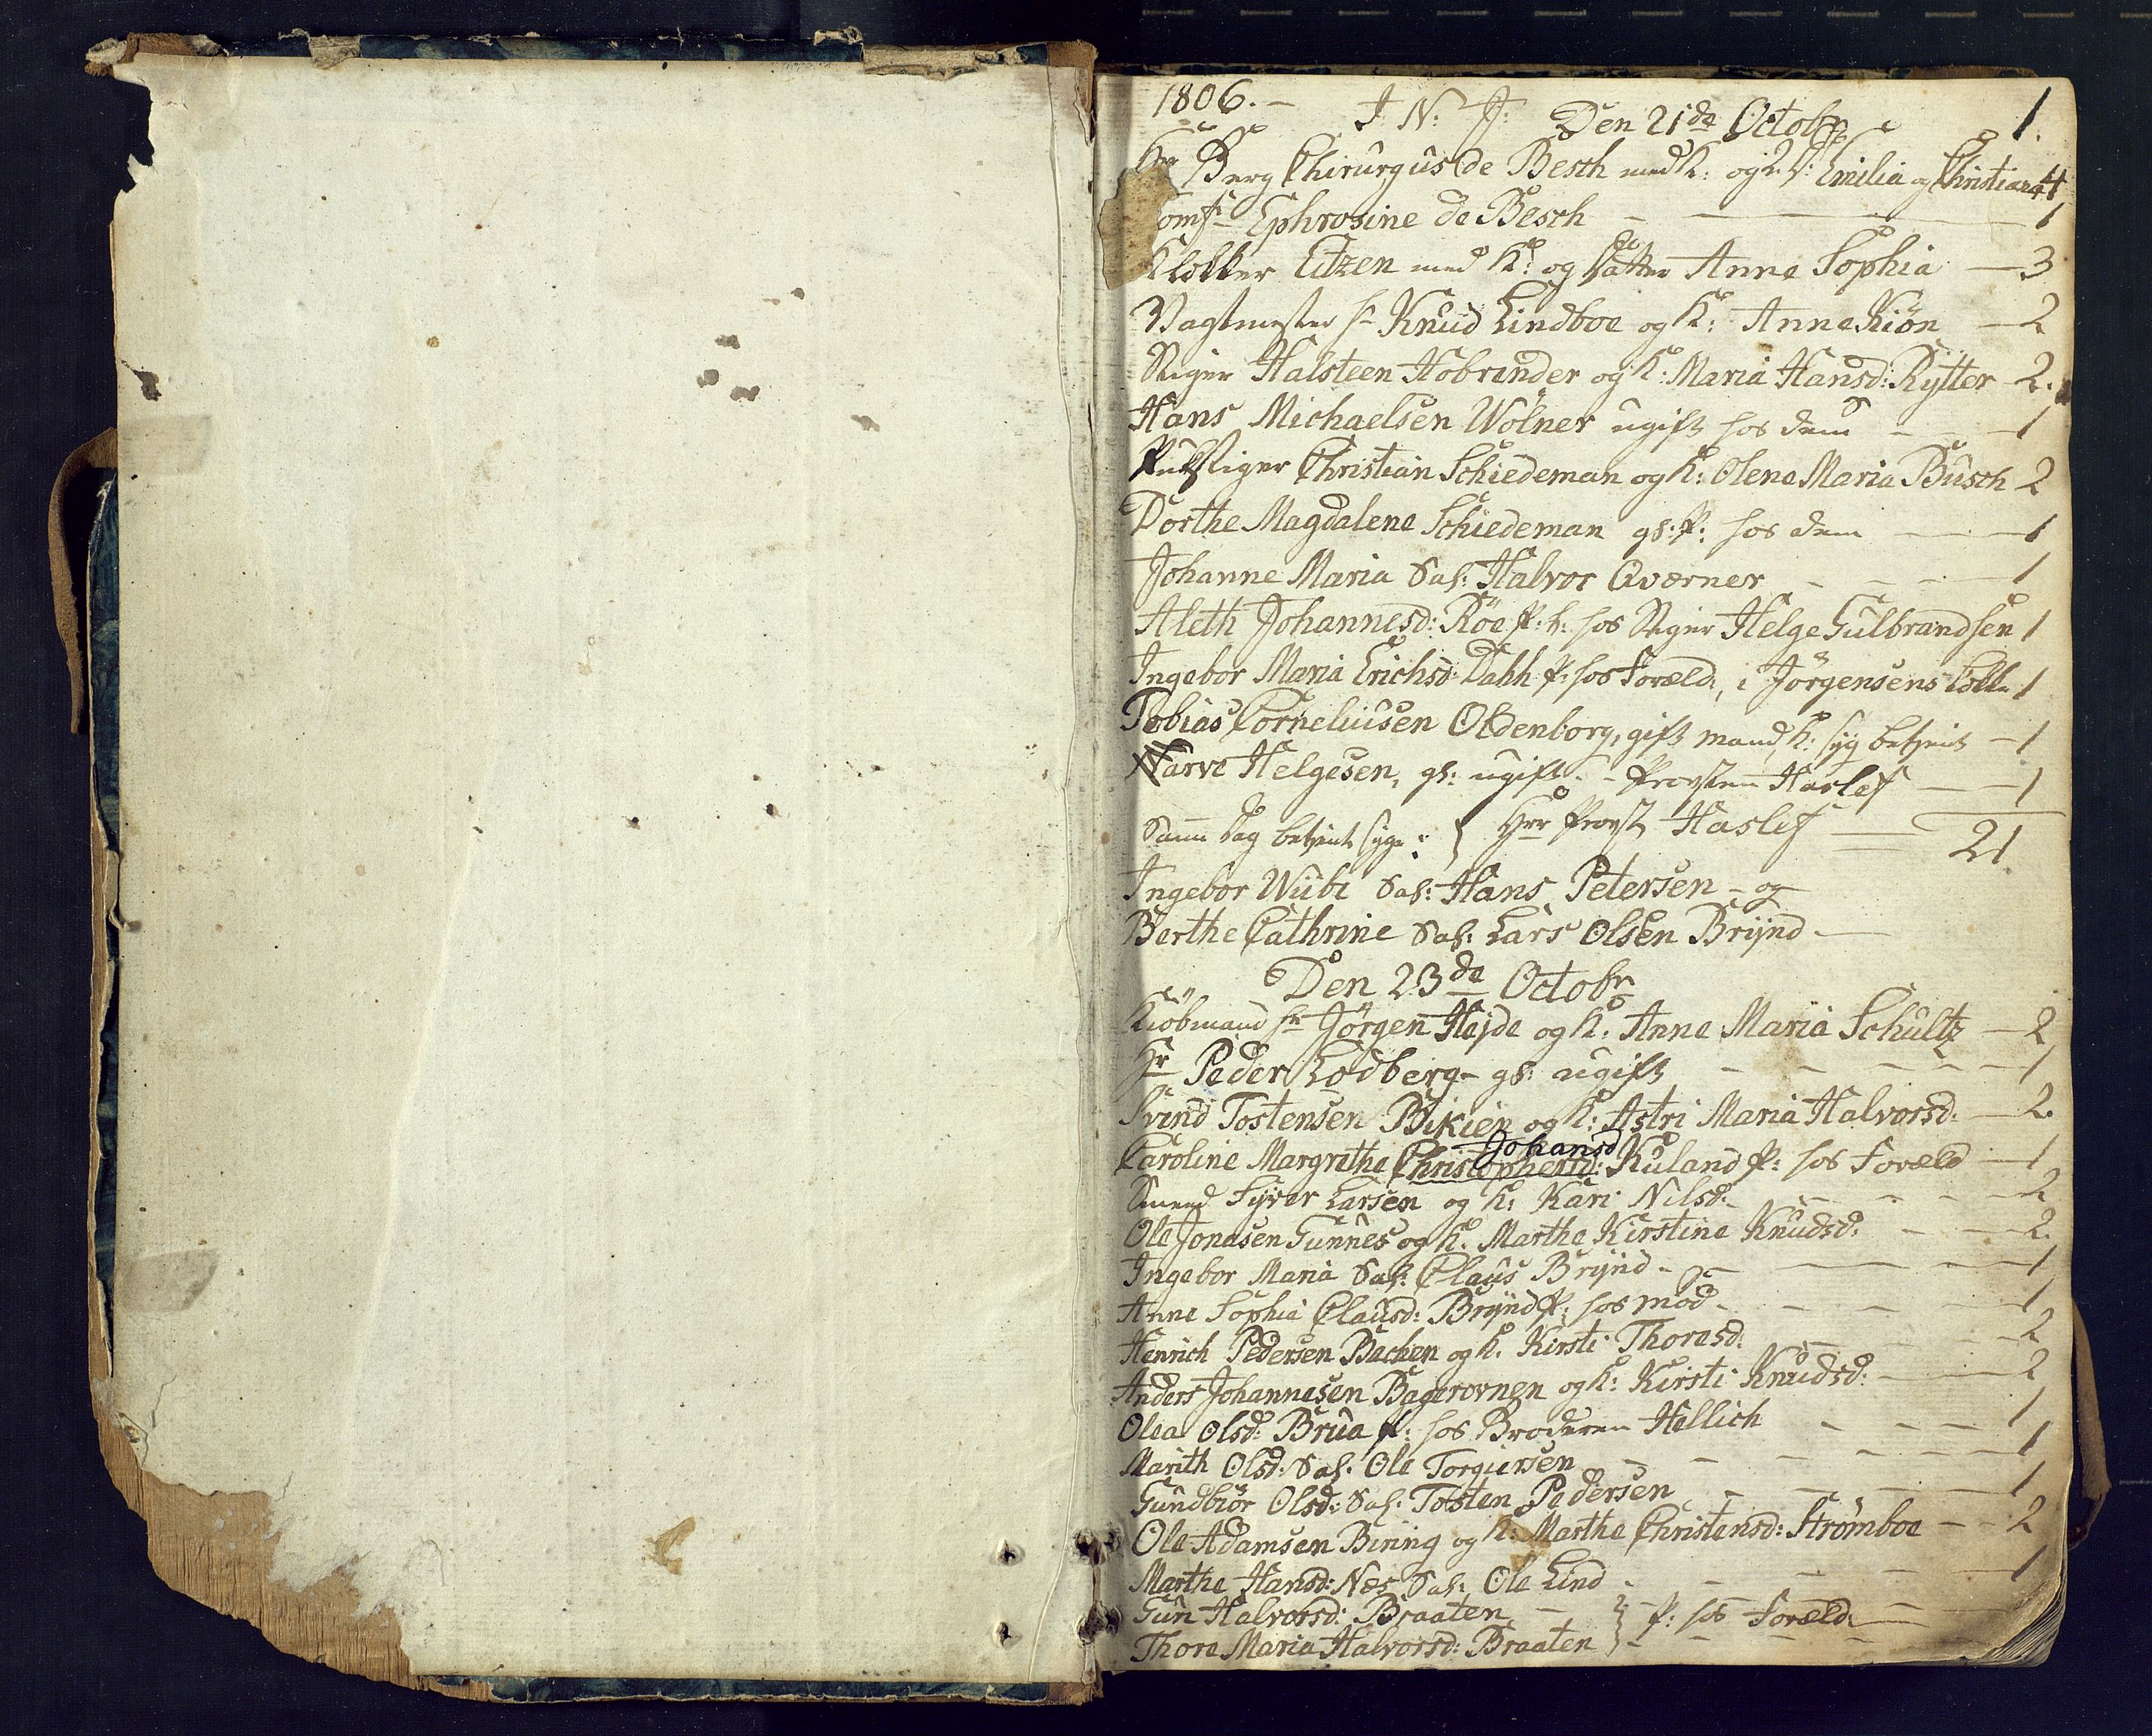 1806. – J. N. J. Den 21de Octobr 1.
Hr Berg Chirurgus de Besch med K: og 2 D: Emilia og Christiana 4
omfr Ephrosine de Besch – – – 1
Klokker Eitzen med K: og Datter Anne Sophia – 3
Vagtmester hr Knud Lindboe og K: Anne Kiön – 2
Stiger Halsteen Hobrinder og K: Maria Hansd: Rÿtter – 2.
Hans Michaelsen Wölner ugift hos dem – – 1
Pukstiger Christian Schiedeman og K: Olene Maria Busch 2
Dorthe Magdalene Schiedeman gl: P: hos dem – – 1
Johanne Maria Sal: Halvor Qværner – – – 1
Aleth Johannesd: Röe P: t: hos Stiger Helge Gulbrandsen 1
Ingebor Maria Erichsd: Dahl P: hos Foræld: i Jörgensens 1
Tobias Corneliusen Oldenborg, gift mand, K: syg betient – 1
Narve Helgesen, gl: ugift – – Provsten Haslef – 1
Samme Dag betient syge: } Hrr Provst Haslef – 21
Ingebor Wiibe Sal: Hans Petersen – og
Berthe Cathrine Sal: Lars Olsen Brÿnd –
Den 23de Octobr
Kiöbmand hr Jörgen Hejde og K: Anne Maria Schultz – 2
Hr Peder Lodberg – gl: ugift – – – – 1
Svend Tostensen Bikien og K: Astri Maria Halvorsd: – 2.
Johansd
Caroline Margrethe Christophersd: Kuland P: hos Foræld – 1
Smed Syver Larsen og K: Kari Nilsd: – – – 2
Ole Jonasen Gunnes og K: Marthe Kirstine Knudsd: – – 2.
Ingebor Maria Sal: Claus Brÿnd – – – – – 1
Anne Sophie Clausd: Brÿnd P: hos mod – – – – 1
Henrich Pedersen Bachen og K: Kirsti Thoresd: – – – 2
Anders Johannesen Bagerovnen og K: Kirsti Knudsd: – – 2
Olea Olsd: Brua P: hos Broderen Hellich – – – 1
Marith Olsd: Sal: Ole Torgiersen – – – – – 1
Gundbiör Olsd: Sal: Tosten Pedersen – – – – 1
Ole Adamsen Biring og K: Marthe Christensd: Strömboe – – 2
Marthe Hansd: Næs Sal: Ole Lind – – – – 1
Gun Halvorsd: Braaten – } P: hos Foræld: –
Thore Maria Halvorsd: Braaten } – – – –